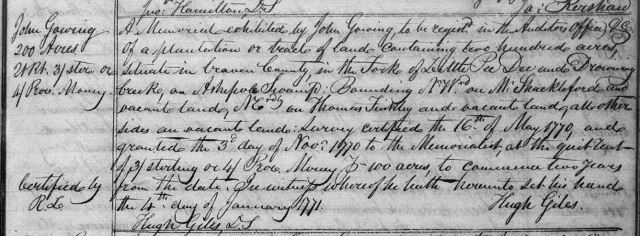 Jno: Hamilton, D.S. Ja: Kershaw
John Gowing
200 Acres
Qt Rt. 3/ ster. or
4/ Proc. Money.
A Memorial exhibited by John Gowing to be registd. in the Auditors Office &c
of a plantation or tract of land containing two hundred acres,
situate in Craven County, in the Fork of Little Pee Dee and Drowning
Creek, on Ashpole Swamp: Bounding N Wd. on Mr. Shackleford and
vacant land, N Erdly on Thomas Tinkley and vacant land, all other
sides on vacant land: Survey certified the 16th. of May 1770, and
granted the 3d. day of Novr. 1770 to the Memorialist, at the quit rent
of 3/ sterling or 4/ Proc Money P 100 acres, to commence two years
from the date. In witness whereof he hath hereunto set his hand
the 4th. day of January 1771. Hugh Giles.
Hugh Giles, D.S.
Certified by
R. L.